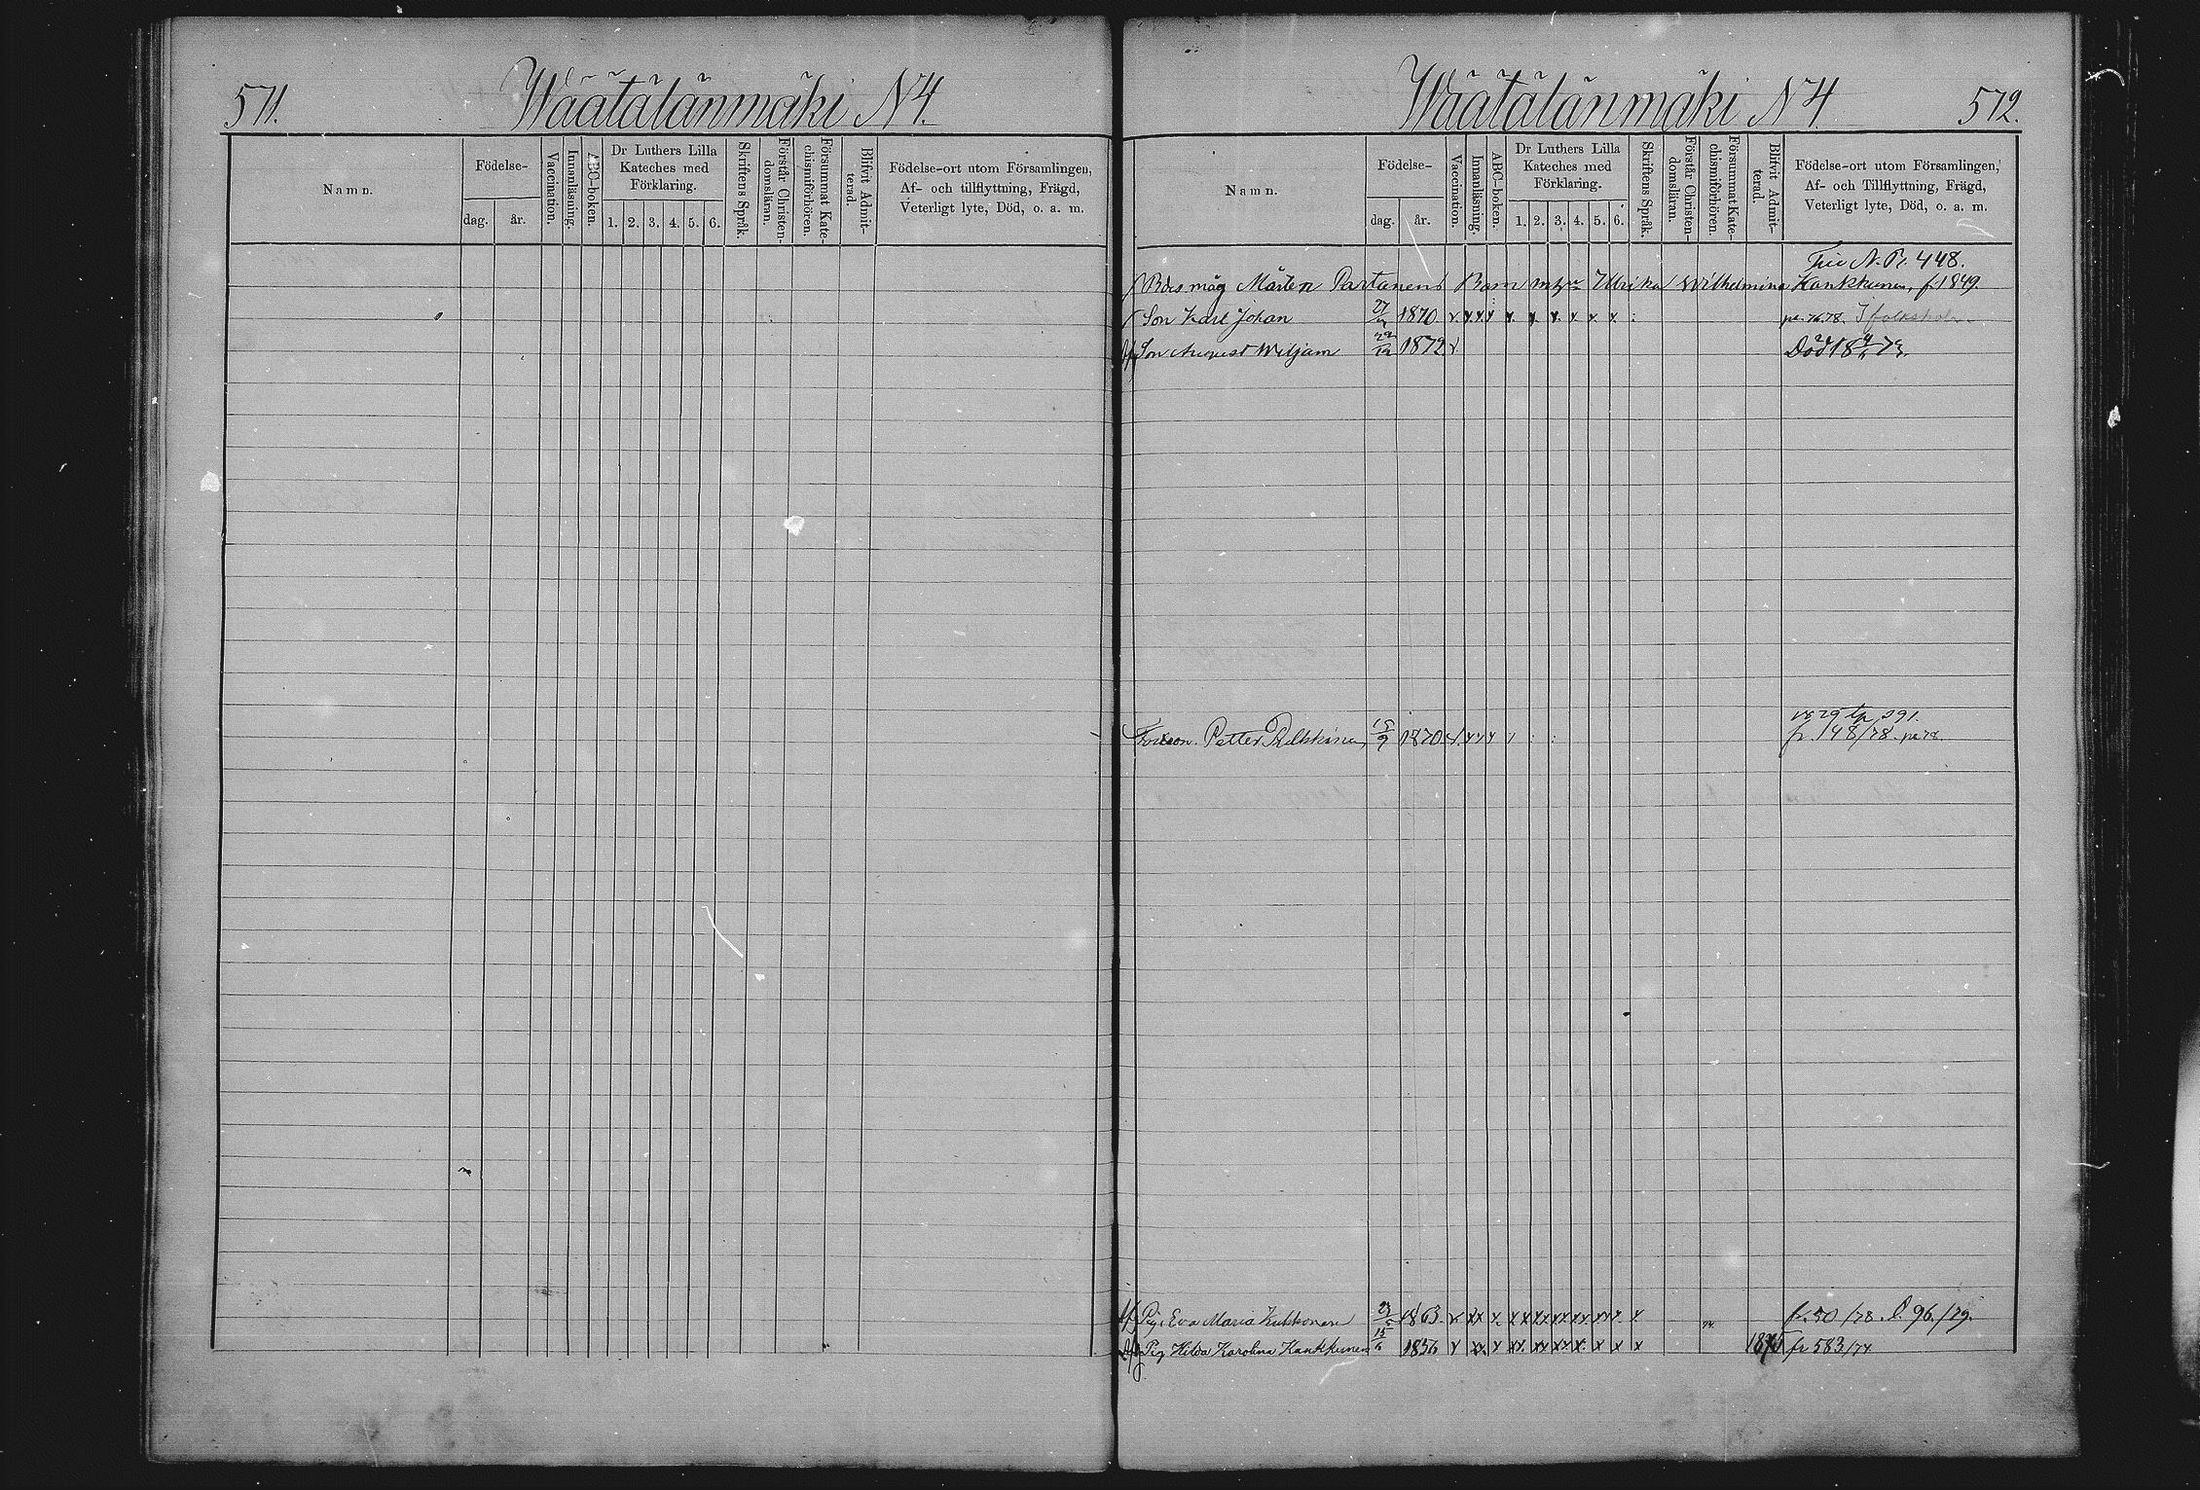 571.
Wäätälänmäki N4.
Namn.
Födelse-
dag. år.
Vaccination.
Innanläsning.
ABC-boken.
Dr Luthers Lilla
Kateches med
Förklaring.
1. 2. 3. 4. 5. 6.
Skriftens Språk.
Förstår Christen-
domsläran.
Försummat Kate-
chismiförhören.
Blifvit Admit-
terad.
Födelse-ort utom Församlingen,
Af- och tillflyttning, Frägd,
Veterligt lyte, Död, o. a. m.
Wäätälänmäki N4. 572.
Namn.
Födelse-
dag. år.
Vaccination.
Innanläsning.
ABC-boken.
Dr Luthers Lilla
Kateches med
Förklaring.
1. 2. 3. 4. 5. 6.
Skriftens Språk.
Förstår Christen-
domsläran.
Försummat Kate-
chismiförhören.
Blifvit Admit-
terad.
Födelse-ort utom Församlingen,
Af- och Tillflyttning, Frägd,
Veterligt lyte, Död, o. a. m.
448.
måg Mårten Partanens Barn Ulrika Wilhelmina Kankkunen, f. 1849.
Son Karl Johan 1870
Son August Wiljam 1872 Död
Petter 1870 fr. 148/78
Pig. Eva Maria Kukkonen 1863 fr. 50/78. 96./79.
Pig Hilda Karolina Kankkunen 15/6 1856 1875 fr 583/74